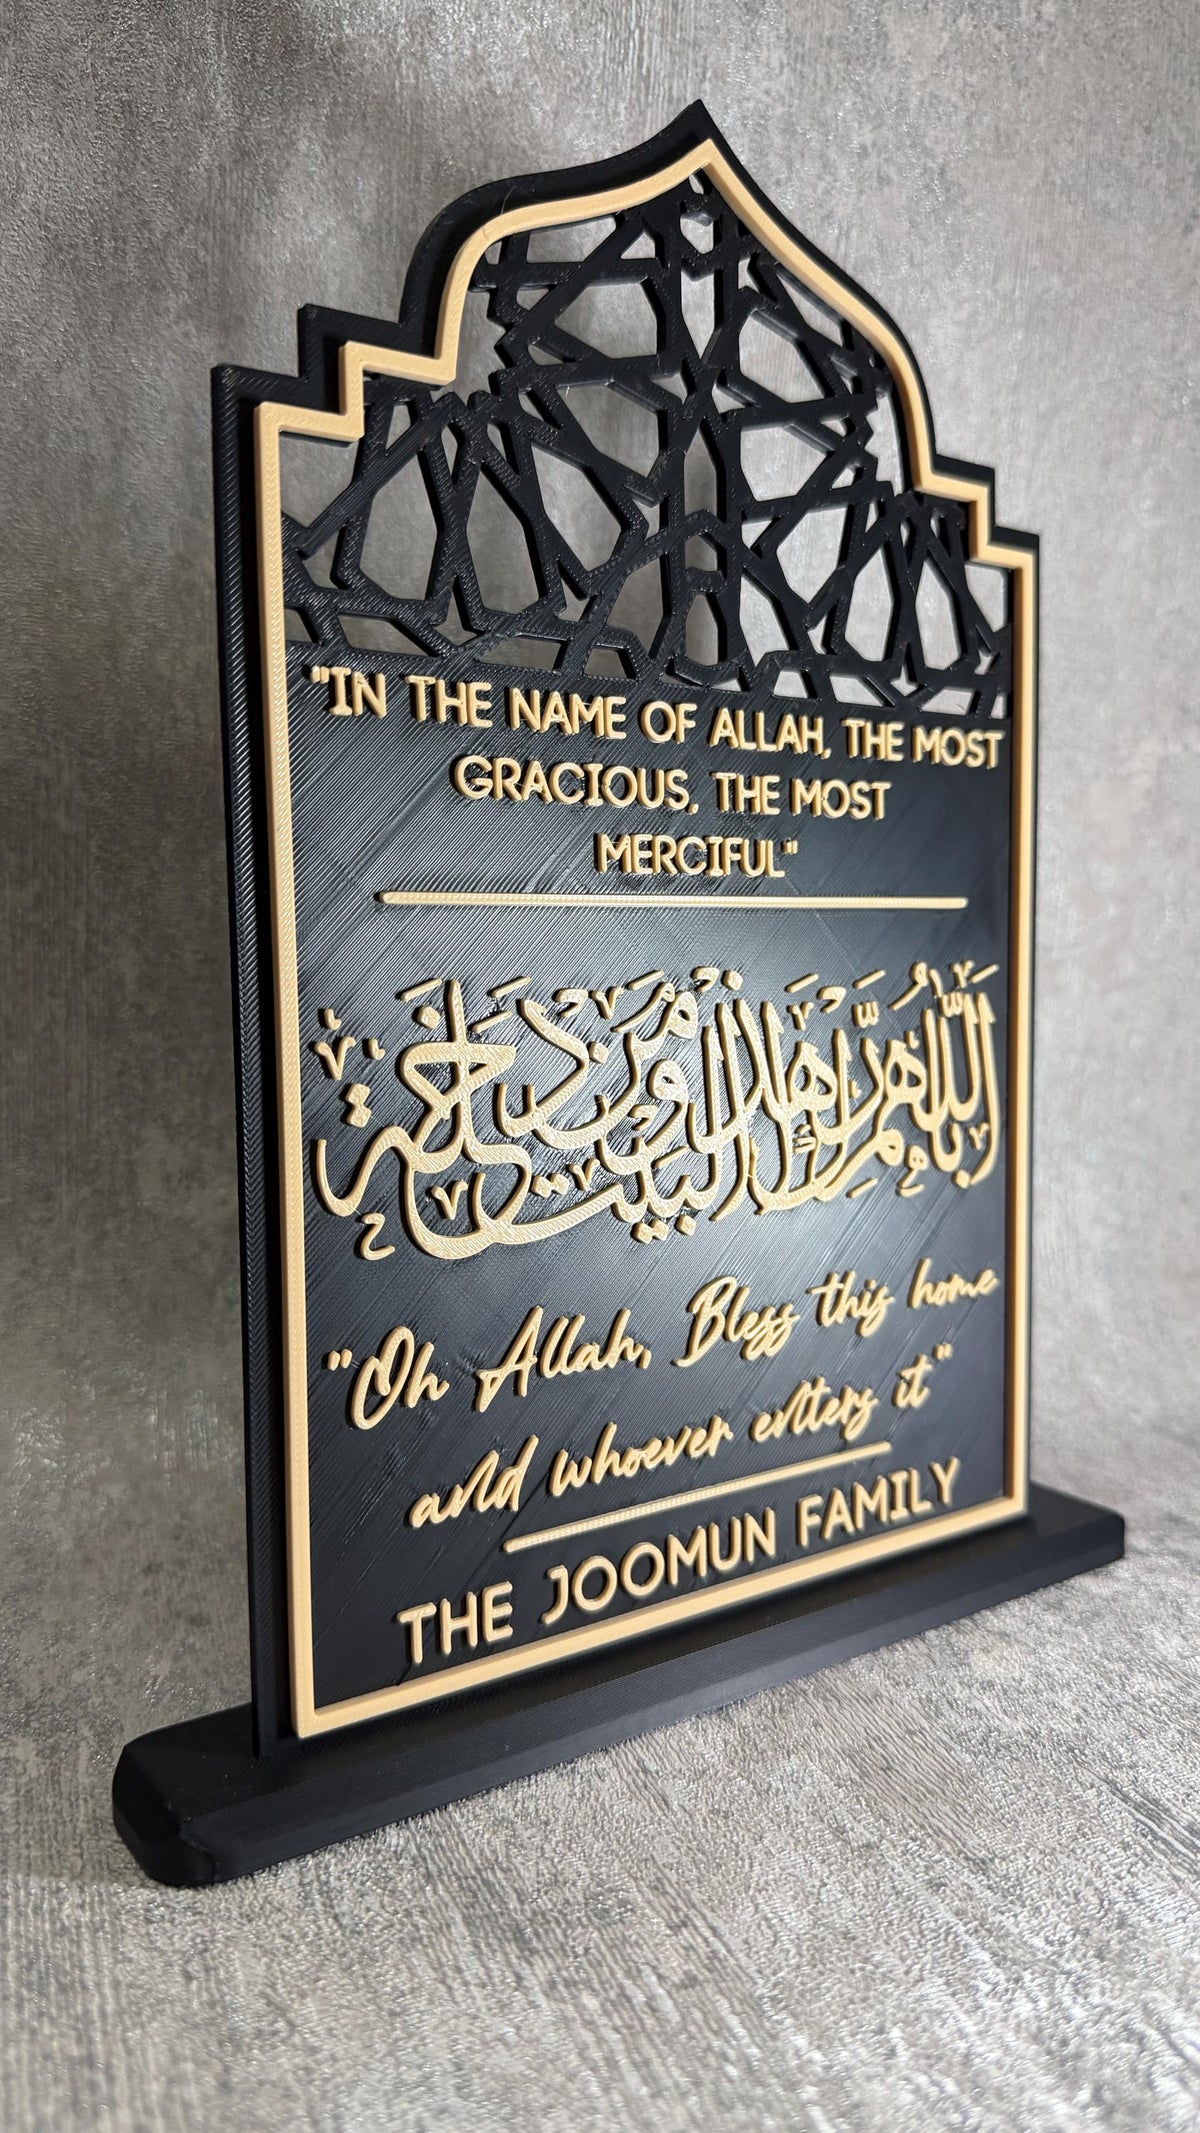 "IN THE NAME OF ALLAH, THE MOST
GRACIOUS, THE MOST
MERCIFUL"
اَللّٰهُمَّ بَارِكْ هٰذَا الْبَيْتَ وَمَنْ دَخَلَهُ
"Oh Allah, Bless this home
and whoever enters it"
THE JOOMUN FAMILY